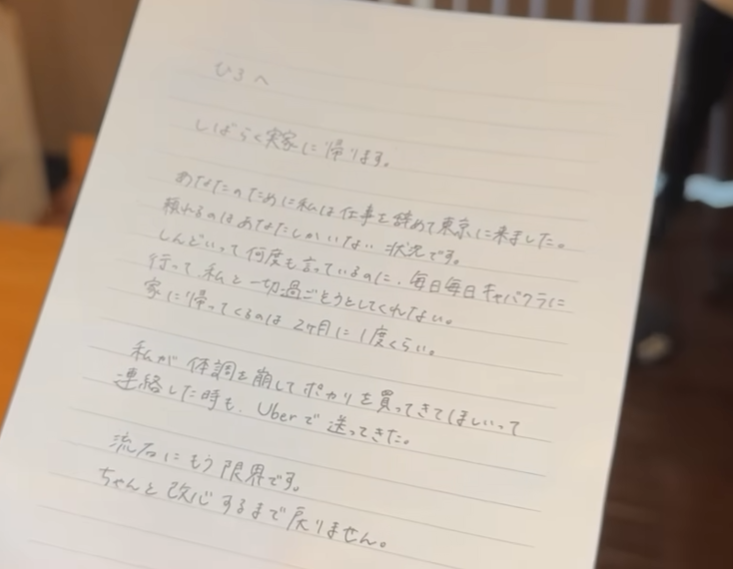 ひろへ
しばらく実家に帰ります。
あなたのために私は仕事を辞めて東京に来ました。
頼れるのはあなたしかいない状況です。
しんどいって何度も言っているのに、毎日毎日キャバクラに
行って私と一切過ごそうとしてくれない。
家に帰ってくるのは2ヶ月に1度くらい。
私が体調を崩してポカリを買ってきてほしいって
連絡した時も、Uberで送ってきた。
流石にもう限界です。
ちゃんと改心するまで戻りません。